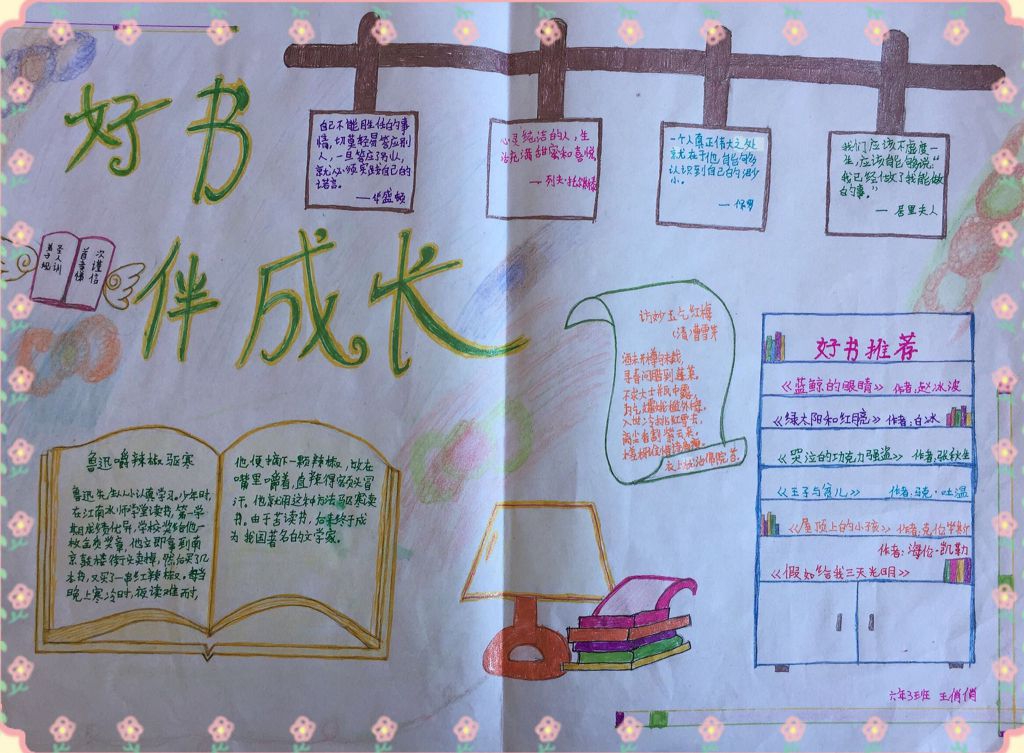 好书
伴成长
自己不能胜任的事
情,切莫轻易答应别
人,一旦答应了别人,
就必须实践自己的
诺言。
—华盛顿
心灵纯洁的人,生
活充满甜蜜和喜悦。
—列夫·托尔斯泰
一个人真正伟大之处
就在于他能够
认识到自己的渺
小。
—保罗
我们应该不虚度一
生,应该能够说:“
我已经做了我能做
的事。”
—居里夫人
弟子规
圣人训
首孝悌
次谨信
访妙玉乞红梅
(清)曹雪芹
酒未开樽句未裁,
寻春问腊到蓬莱。
不求大士瓶中露,
为乞嫦娥槛外梅。
入世冷挑红雪去,
离尘香割紫云来。
衣上犹沾佛院苔。
好书推荐
《蓝鲸的眼睛》 作者:赵冰波
《绿太阳和红月亮》 作者:白冰
《哭泣的巧克力强盗》 作者:张秋生
《王子与贫儿》 作者:马克·吐温
《屋顶上的小孩》 作者:克伯学斯
作者:海伦·凯勒
《假如给我三天光明》
鲁迅嚼辣椒驱寒
鲁迅先生从小认真学习。少年时,
在江南水师学堂读书,第一学
期成绩优异,学校奖给他一
枚金质奖章。他立即拿到南
京鼓楼街头卖掉,然后买了几
本书,又买了一串红辣椒。每当
晚上寒冷时,夜读难耐,
他便摘下一颗辣椒,放在
嘴里嚼着,直辣得额头冒
汗。他就用这种方法驱寒卖
书。由于苦读书,后来终于成
为我国著名的文学家。
六年3班 王俏俏